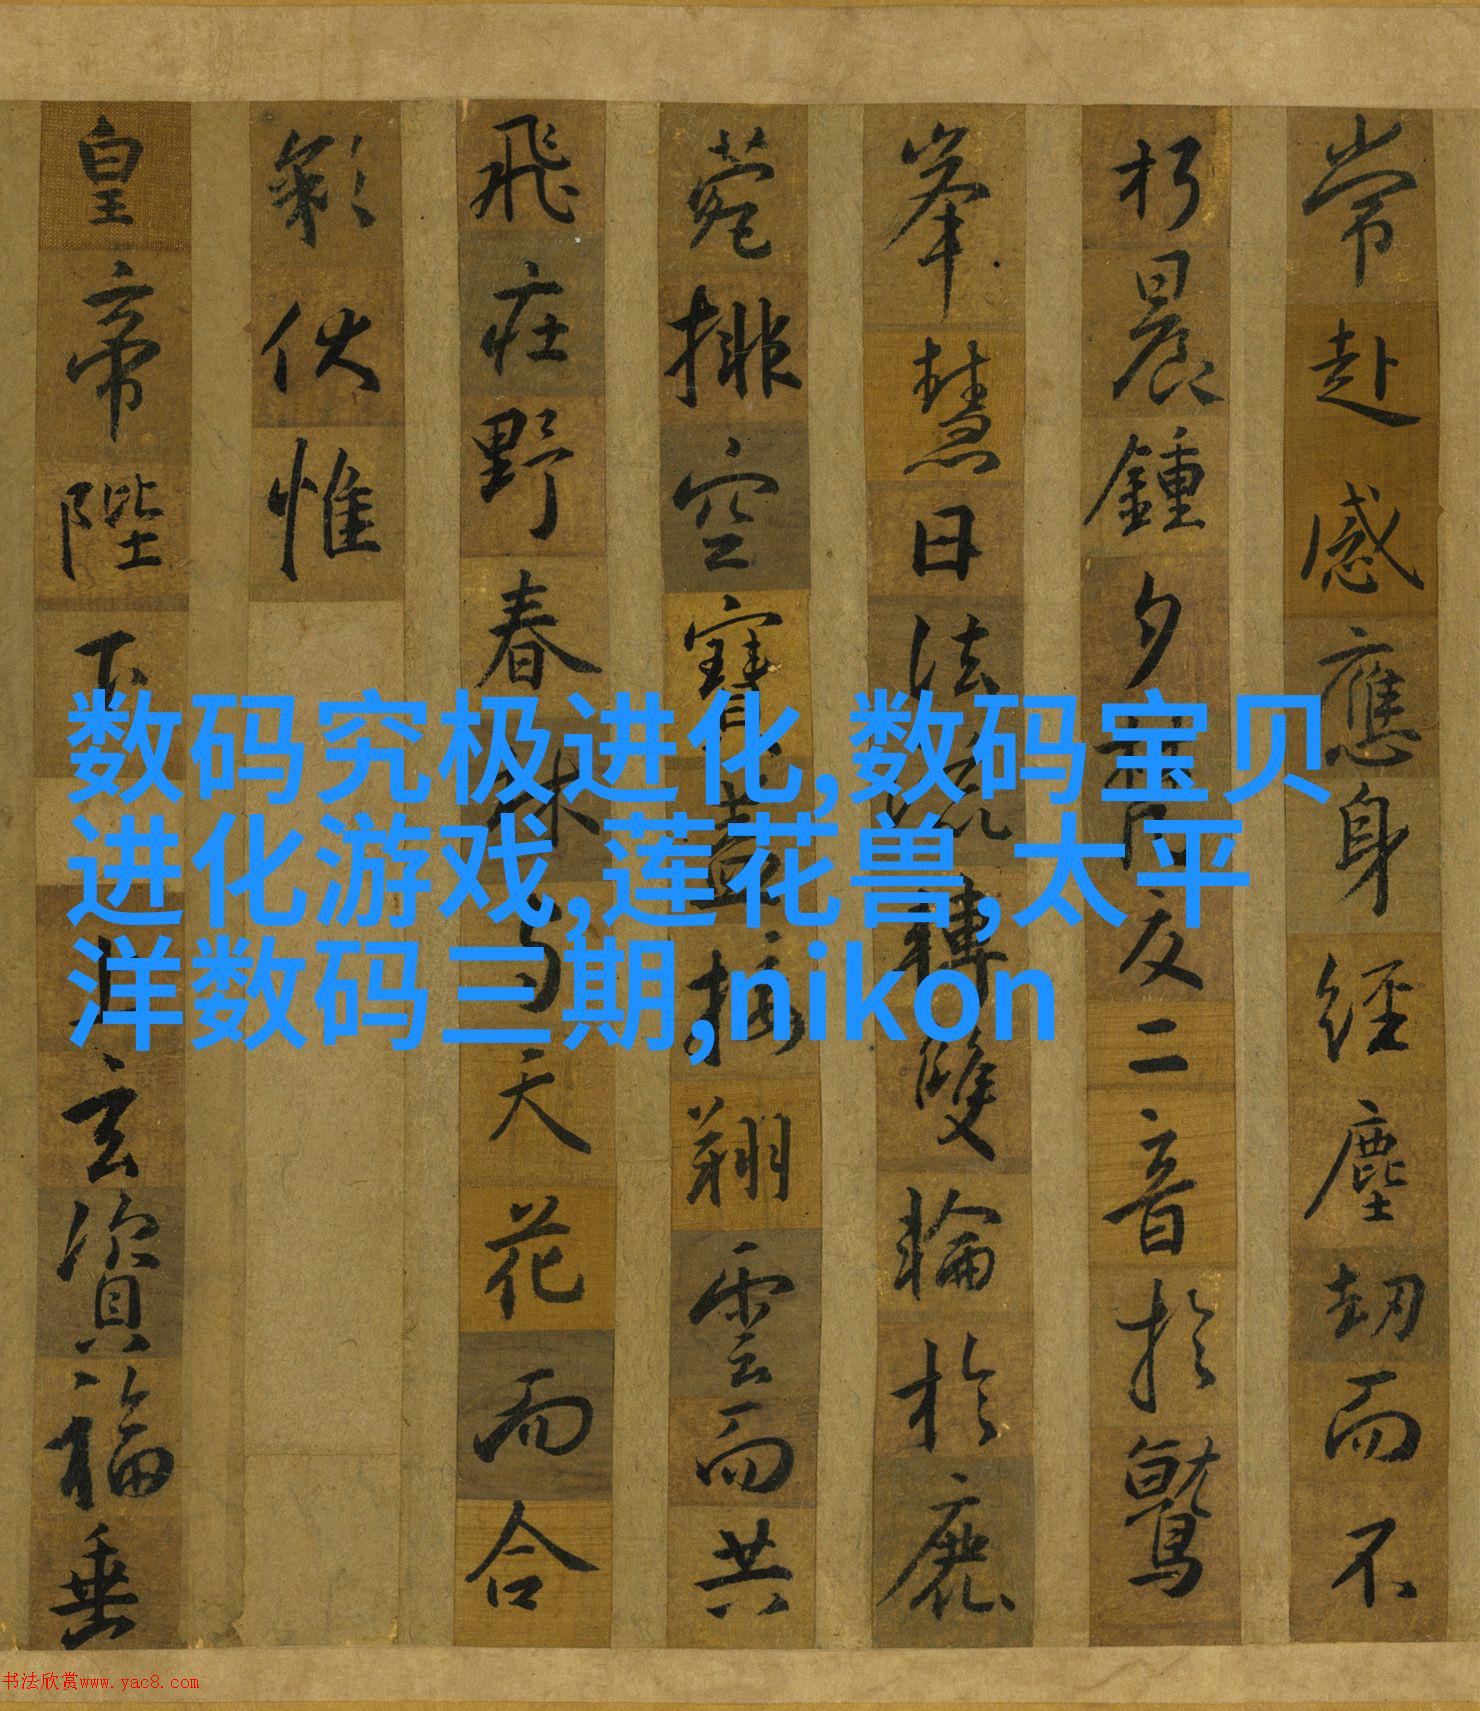 常赴感應身經塵劫而不
朽晨鍾夕交二音於鷲
峯慧日法流轉雙輪於鹿
菀排空寶蓋接翔雲而共
飛莊野春林与天花而合
彩伏惟
皇帝陛下上玄資福垂
数码究极进化,数码宝贝
进化游戏,莲花兽,太平
洋数码三期,nikon
书法欣赏www.yac8.com